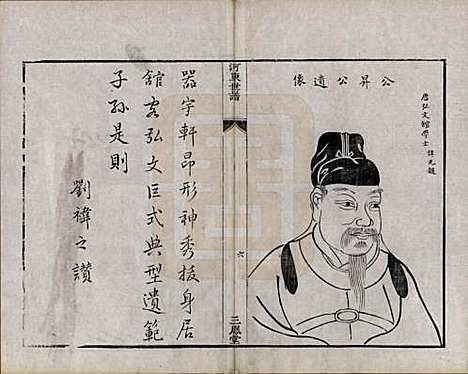 公昇公遺像
唐弘文館學士 諱元超
河東世譜
六
三鳳堂
器宇軒昂形神秀拔身居
館客弘文巨式典型遺範
子孫是則
劉禕之讚